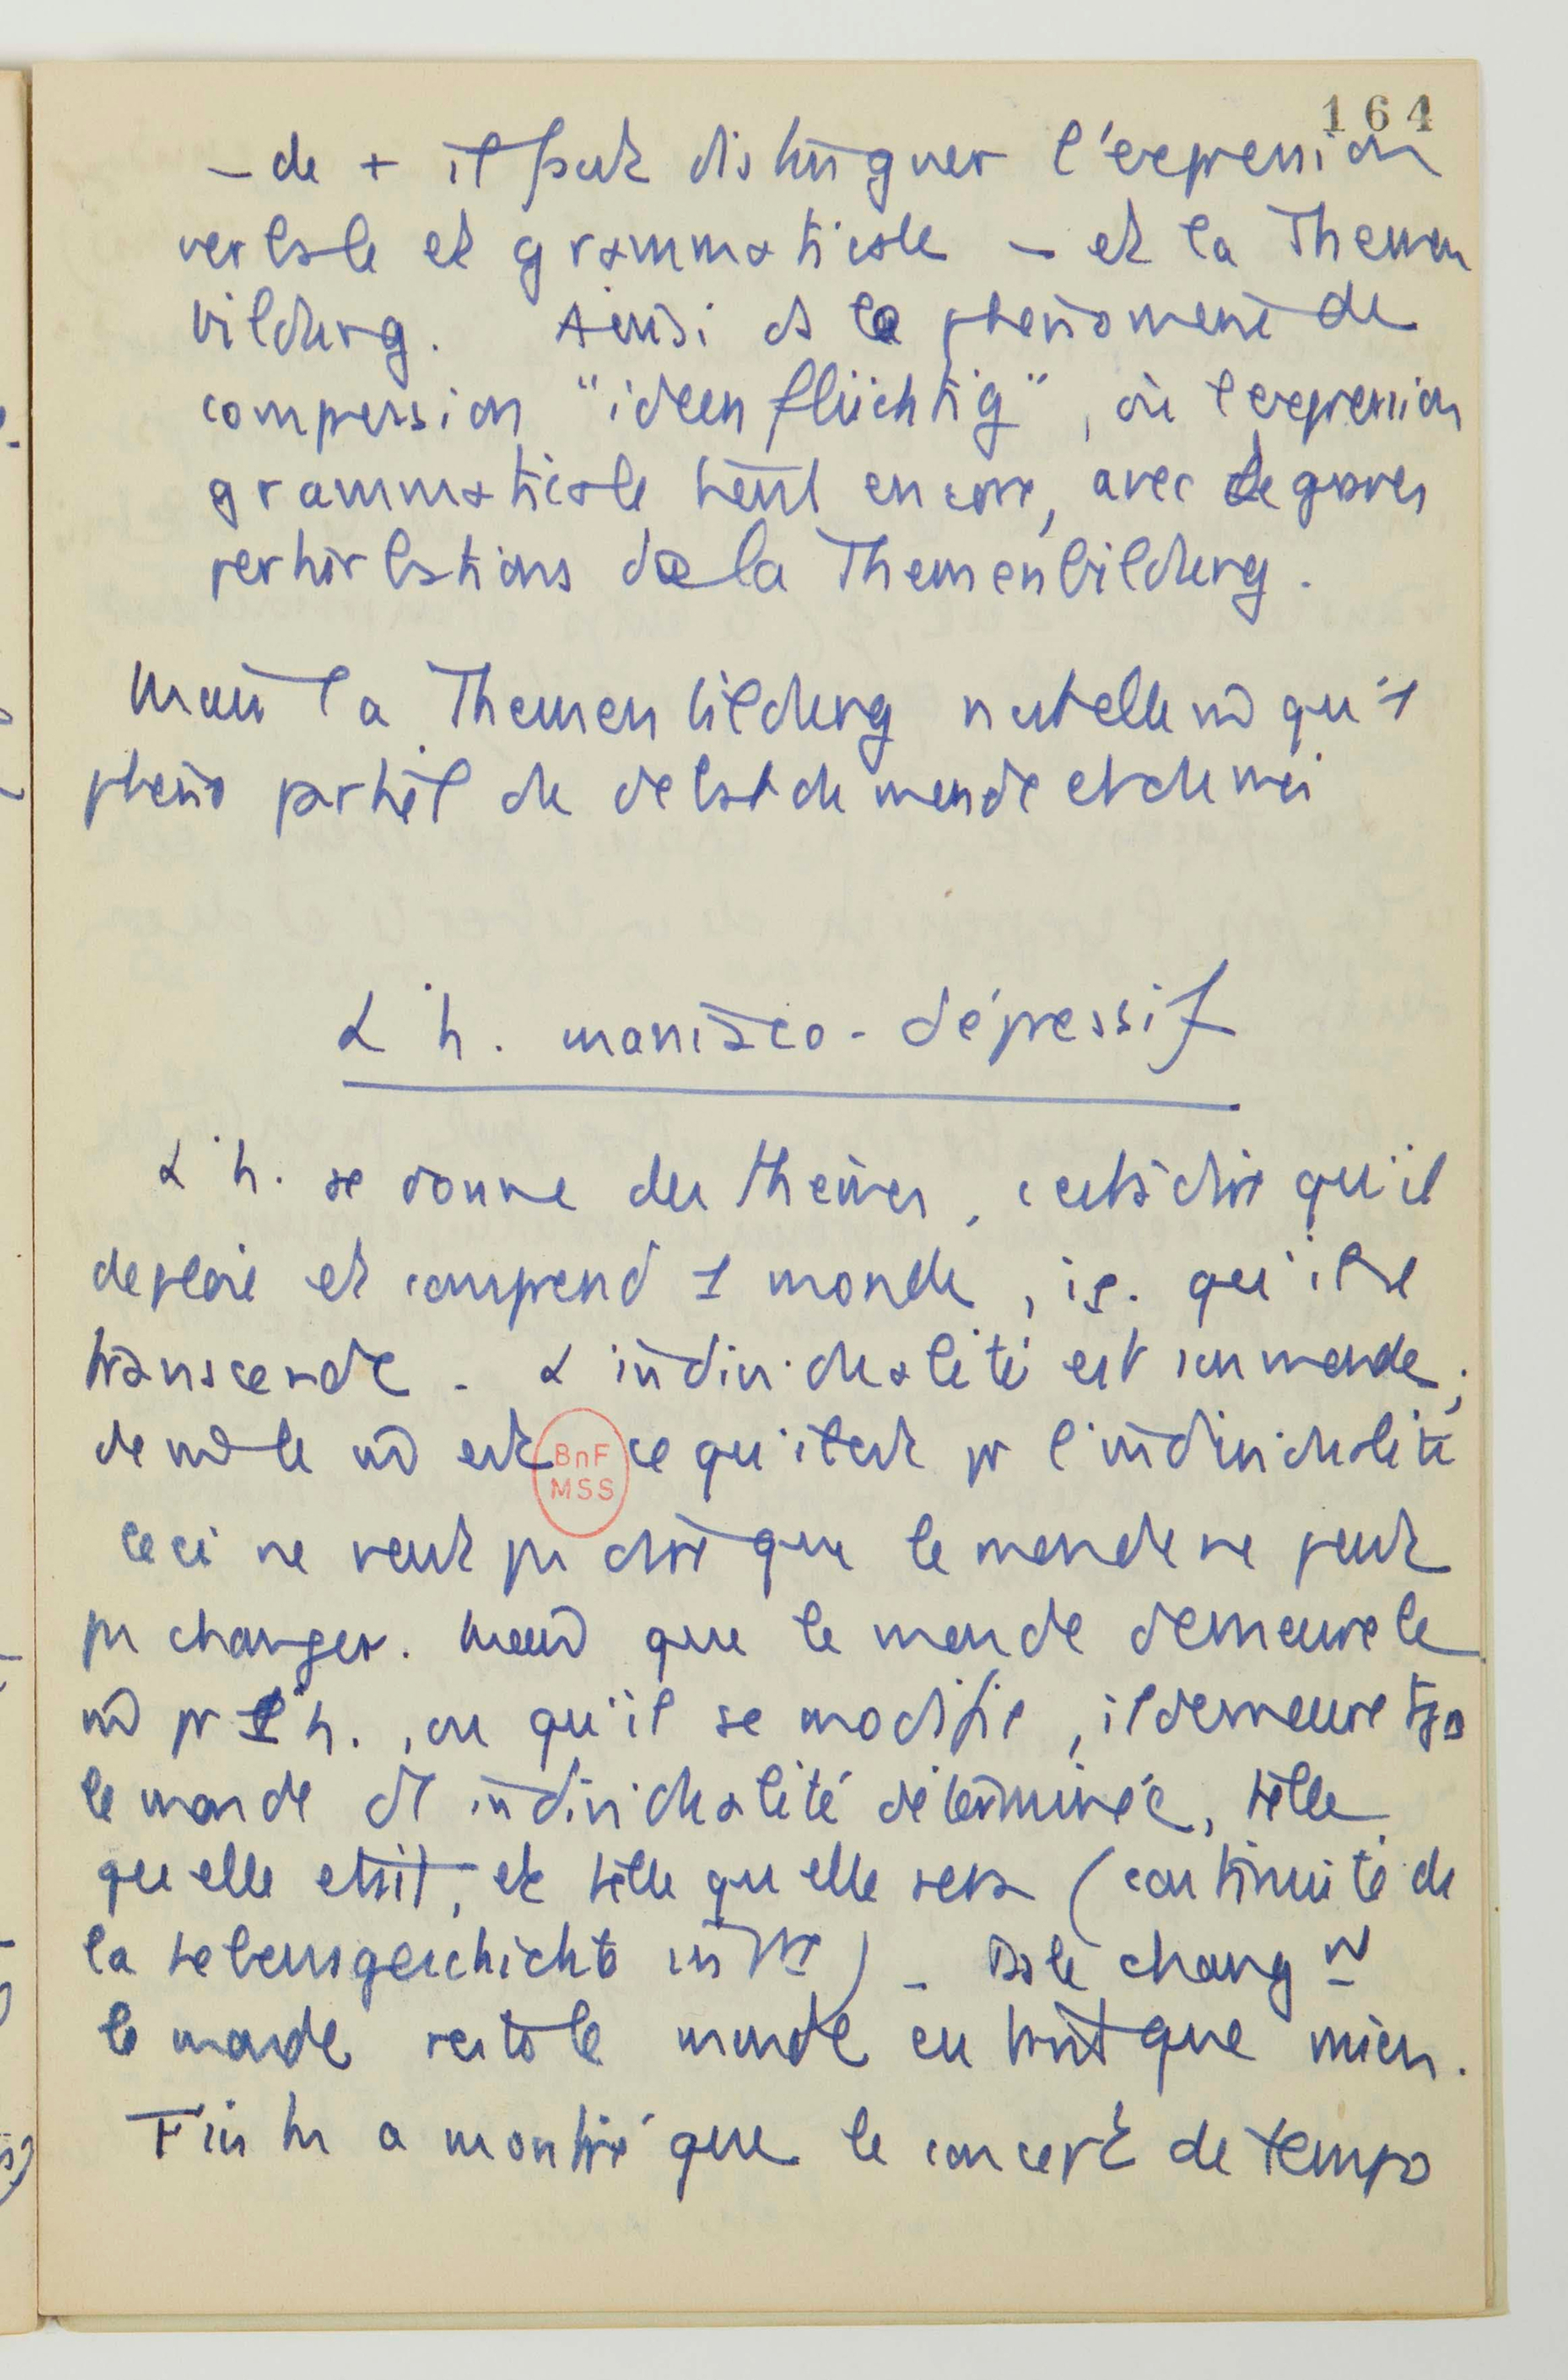 164
- de + il faut distinguer l'expression
verbale et grammaticale - et la Themen
bildung. Ainsi ds le phénomène de
compression "ideenflüchtig", où l'expression
grammaticale tient encore, avec de graves
perturbations de la Themenbildung.
Mais la Themenbildung n'est elle m̂ qu'1
phéno partiel de debat du monde et du moi
L'h. maniaco-dépressif
L'h. se donne des thèmes, c'est à dire qu'il
deploie et comprend 1 monde, i.e. qu'il se
transcende. L'individualité est son monde;
de m̂ le m̂ est ce qu'il est pr l'individualité
BnF
MSS
Ceci ne veut pas dire que le monde ne peut
pas changer. Mais que le monde demeure le
m̂ pr l'h., ou qu'il se modifie, il demeure tjs
le monde d'1 individualité déterminée, telle
qu'elle était, et telle qu'elle sera (continuité de
la Lebensgeschichte). Ds le chang^nt
le monde reste le monde en tant que mien.
a montré que le concept de tempo